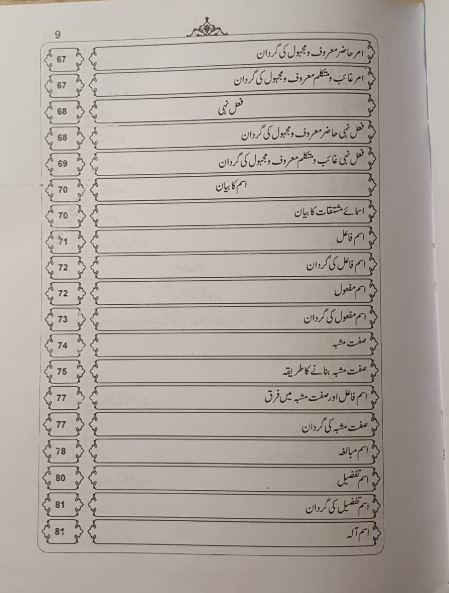 9
امر حاضر معروف و مجہول کی گردان 67
امر غائب و متکلم معروف و مجہول کی گردان 67
فعل نہی 68
فعل نہی حاضر معروف و مجہول کی گردان 68
فعل نہی غائب و متکلم معروف و مجہول کی گردان 69
اسم کا بیان 70
اسمائے مشتقات کا بیان 70
اسم فاعل 71
اسم فاعل کی گردان 72
اسم مفعول 72
اسم مفعول کی گردان 73
صفت مشبہ 74
صفت مشبہ بنانے کا طریقہ 75
اسم فاعل اور صفت مشبہ میں فرق 77
صفت مشبہ کی گردان 77
اسم مبالغہ 78
اسم تفضیل 80
اسم تفضیل کی گردان 81
اسم آلہ 81